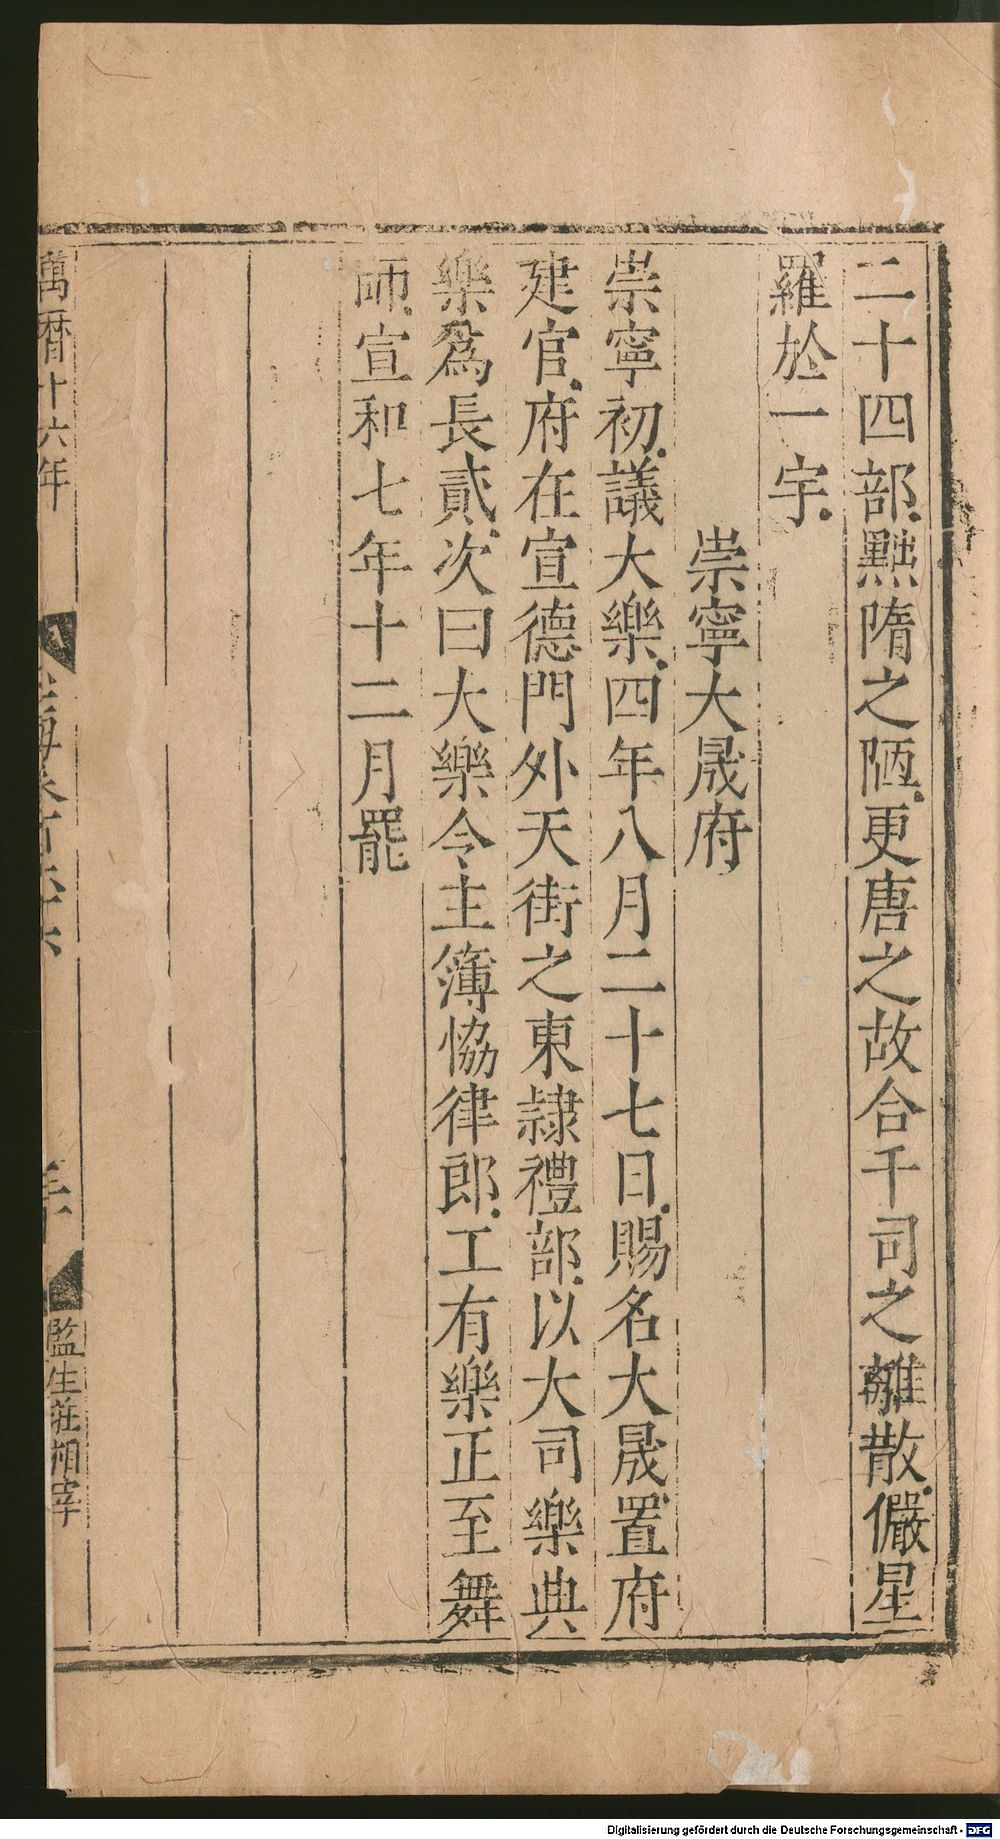 二十四部黜隋之陋更唐之故合千司之離散儼星
羅於一宇
崇寧大晟府
崇寧初議大樂四年八月二十七日賜名大晟置府
建官府在宣德門外天街之東隷禮部以大司樂典
樂爲長貳次曰大樂令主簿恊律郎工有樂正至舞
師宣和七年十二月罷
萬曆十六年
監生莊
Digitalisierung gefördert durch die Deutsche Forschungsgemeinschaft - DFG